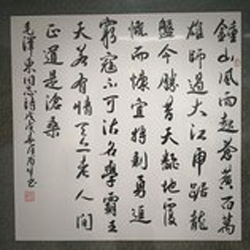 鍾山風雨起蒼黃百萬
雄師過大江虎踞龍
盤今勝昔天翻地覆
慨而慷宜將剩勇追
窮寇不可沽名學霸王
天若有情天亦老人間
正道是滄桑
毛澤東同志詩戊戌年